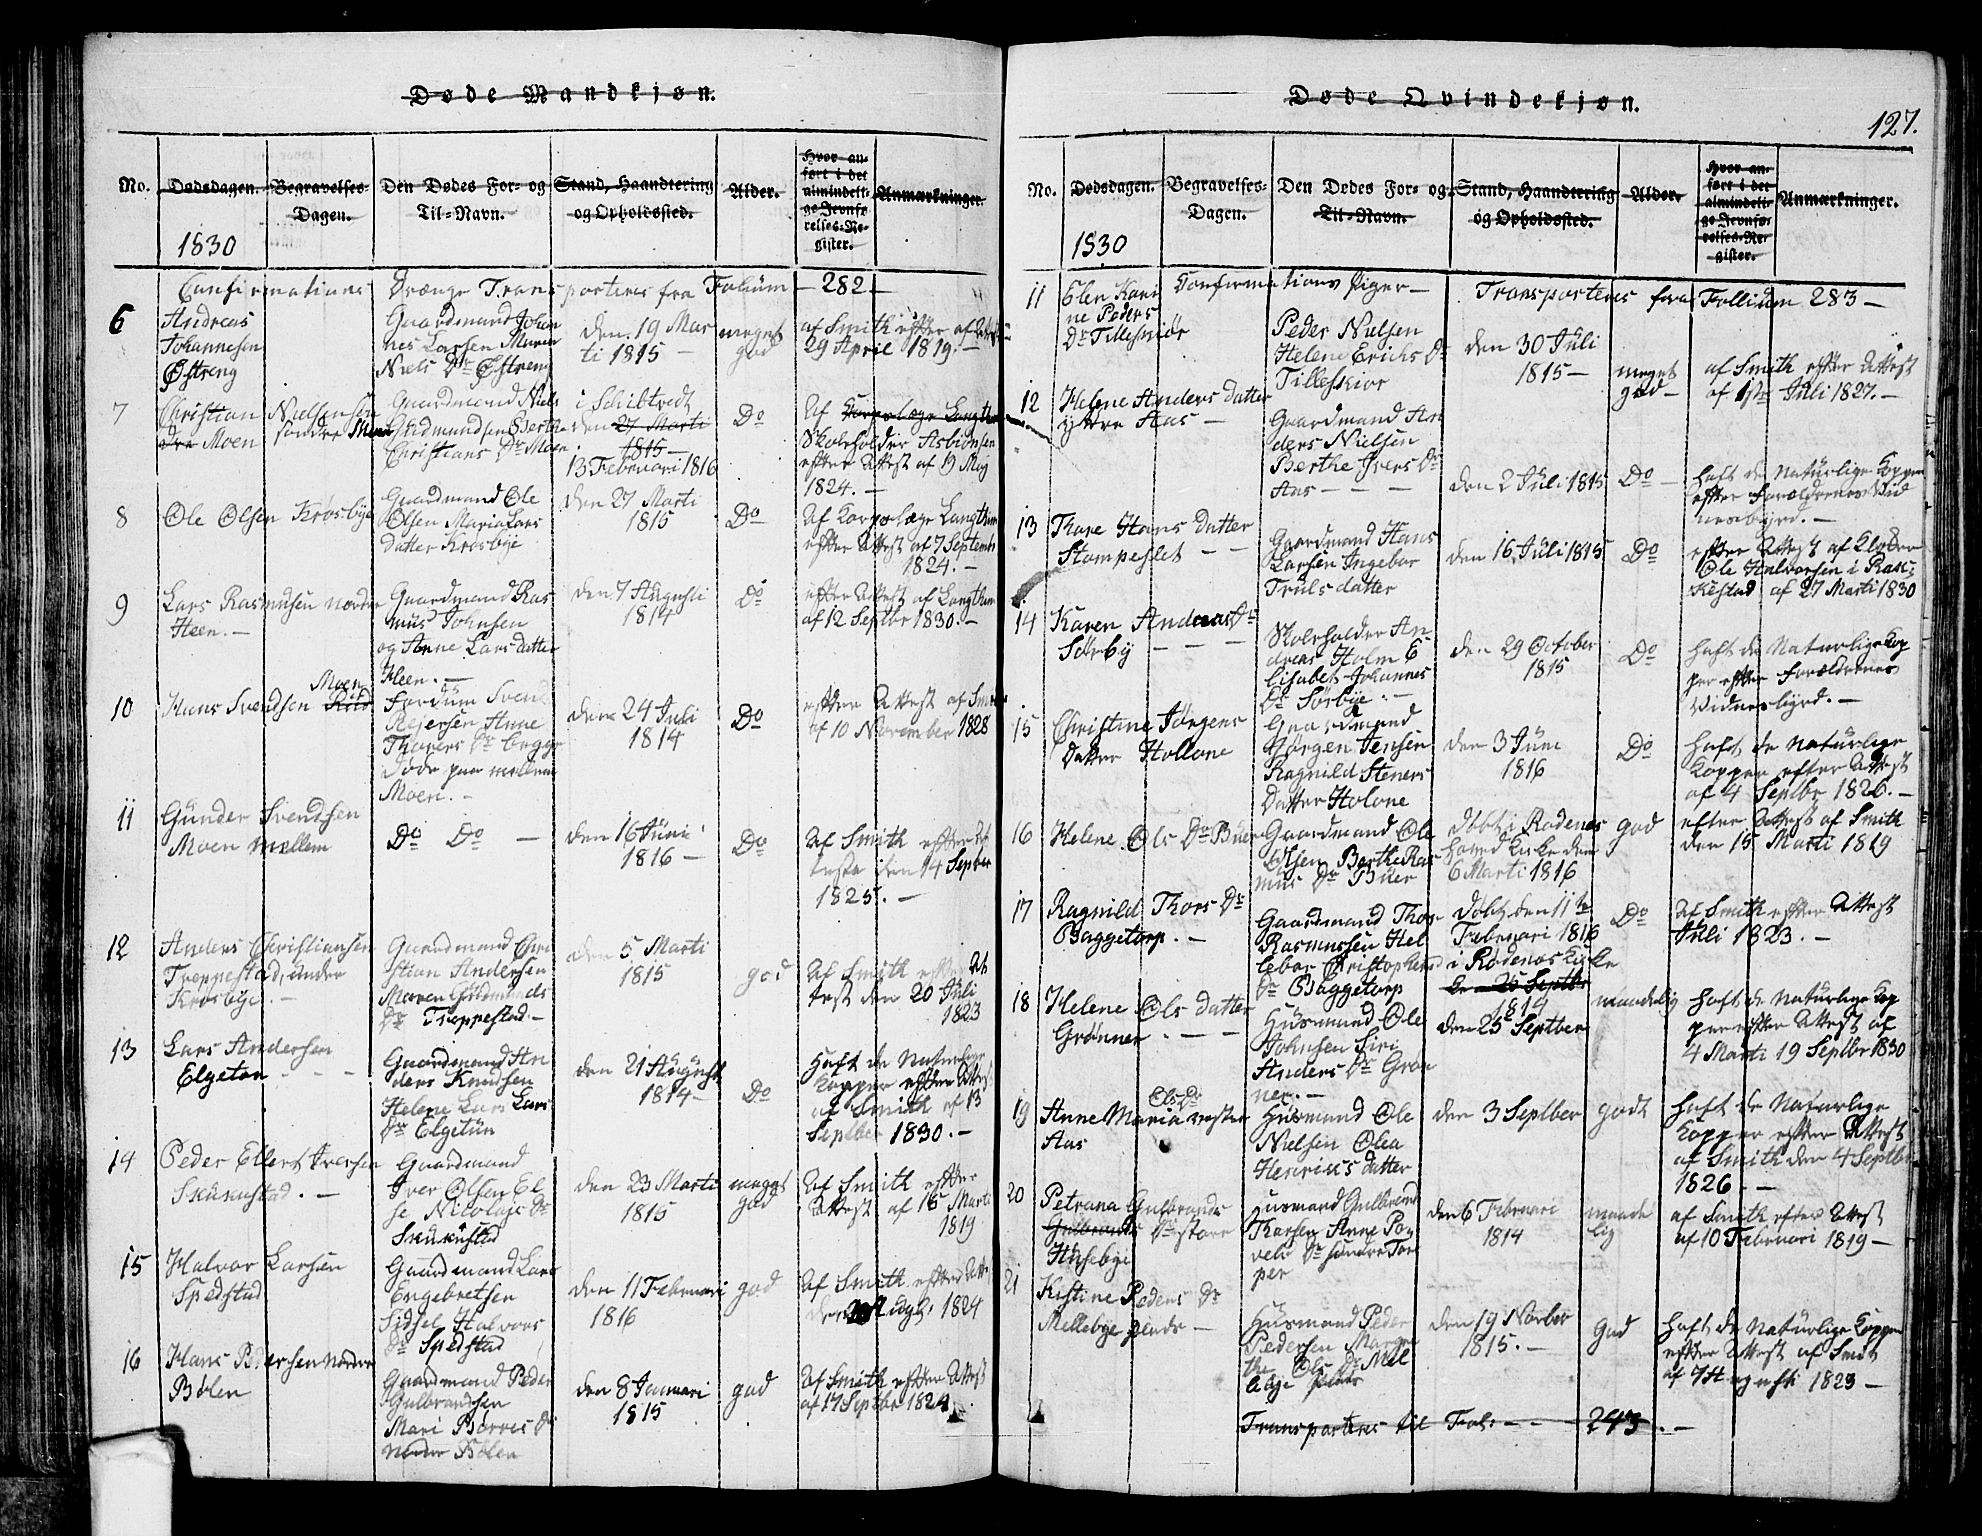 Døde Mandkjøn.
No. Dødsdagen. Begravelses-Dagen. Den Dødes For- og Til-Navn. Stand, Haandtering og Opholdssted. Alder. Hvor anført i det almindelige Jevnførelses-Register. Anmærkninger.
1830
Confirmations Drænge Transporteres fra Folium 282
6 Andreas
Johannesen
Østreng
Gaardmand Johan
nes Larsen Maren
Niels Dr Østreng
den 19 Mar
ti 1815
meget
god
af Smith efter af Attest
29 April 1819.
7 Christian Nielsen søn
dre Moen søndre Moen
Gaardmand Niels
Gudmundsen Berthe
Christians Dr Moen
i Schibtvedt
den 27 Marti
1815
13 Februari 1816
Do
af Korpslæge Langthun
Skoleholder Asbiønsen
efter Attest af 19 May
1824.
8 Ole Olsen Krosbye
Gaardmand Ole
Olsen Maria Lars
datter Krosbye
den 27 Marti
1815
Do
af Korpslæge Langthun
efter Attest af 7 Septemb
1824.
9 Lars Rasmusen nordre
Heen.
Gaardmand Ras
mus Johnsen
og Anne Lars datter
Heen.
den 7 Augusti
1814
Do
efter Attest af Langthun
af 12 Septbr 1830.
10 Hans Svendsen Moen
Fordum Svend
Rejersen Anne
Thorers Dr begge
Døde paa mellem
Moen.
den 24 Juli
1814
Do
efter Attest af Smith
af 10 November 1828
11 Gunder Svendsen
Moen mellem
Do Do
den 16 Juni
1816
Do
Af Smith efter At
teste den 14 Septber
1825.
12 Anders Christiansen
Treppestad, under
Krosbye.
Gaardmand Chri
stian Andersen
Maren Gudmunds
Dr Treppestad
den 5 Marti
1815
god
Af Smith efter At
test den 20 Juli
1823
13 Lars Andersen
Elgeton
Gaardmand An
ders Knudsen
Helene Lars Lars
Dr Elgetun
den 21 August
1814
Do
Haft de Naturlige
Kopper efter Attest
af Smith af 13
Septber 1830.
14 Peder Ellert Iversen
Skukustad.
Gaardmand
Iver Olsen El
se Nicolajs Dr
Skukustad
den 23 Marti
1815
meget
god
Af Smith efter
Attest af 16 Marti
1819
15 Halvor Larsen
Spedstad
Gaardmand Lars
Engebretsen
Sidsel Halvors
Dr Spedstad
den 11 Februari
1816
god
Af Smith efter Atte
1824
16 Hans Pedersen Nordre
Bølen
Gaardmand Peder
Gulbrandsen
Mari Børres Dr
Nordre Bølen
den 8 Januari
1815
god
Af Smith efter Attest
af 17 Septber 1824
Døde Qvindekjøn.
127.
No. Dødsdagen. Begravelses-Dagen. Den Dødes For- og Til-Navn. Stand, Haandtering og Opholdssted. Alder. Hvor anført i det almindelige Jevnførelses-Register. Anmærkninger.
1830
Confirmations Piger Transporteres fra Follium 283
11 Elen Kari
ne Peders
Dr Tilleskiør
Peder Nielsen
Helene Erichs Dr
Tilleskior
den 30 Juli
1815
meget
god
af Smith efter Attest
af 1ste Juli 1827.
12 Helene Anders datter
yttre Aas
Gaardmand An
ders Nielsen
Berthe Ivers Dr
Aas
den 2 Juli 1815
Do
haft de Naturlige Kopper
efter Forældrenes Vid
nesbyrd.
13 Thare Hans datter
Stompeslet
Gaardmand Hans
Larsen Ingebor
Truls datter
den 16 Juli 1815
Do
efter Attest af Kloker
Ole Halvorsen i Rak
kestad af 27 Marti 1830
14 Karen Andreas Dr
Sørby
Skoleholder An
dreas Holm E
lisabet Johannes
Dr Sørbye
den 29 October
1815
Do
haft de Naturlige Kop
per efter Forældrenes
Vidnesbyrd.
15 Christine Jørgens
Datter Hollone
Gaardmand
Jørgen Jensen
Ragnild Steners
Datter Holone
den 3 Juni
1816
Do
haft de Naturlige
Kopper efter Attest
af 4 Septbr 1826.
16 Helene Ols Dr Buer
Gaardmand Ole
Olsen Berthe Ras
mus Dr Buer
Døbt i Rødenes
hoved Kirke den
6 Marti 1816
god
efter Attest af Smith
den 15 Marti 1819
17 Ragnild Thors Dr
Baggetorp.
Gaardmand Thor
Rasmussen Hel
lebor Christophers
Dr Baggetorp
Døbt den 11te
Februari 1816
i Rødenes Kirke
Do
Af Smith efter Attest
Juli 1823.
18 Helene Ols datter
Grønner
Husmand Ole
Johnsen Siri
Anders Dr Grøn
ner.
25 Septbr
1814
den 25 Septber
maadelig
haft de Naturlige Kop
per efter Attest af
4 Marti 19 Septbr 1830
19 Anne Maria Ols Dr vestre
Aas
Husmand Ole
Nielsen Olea
Henrik's datter
den 3 Septber
godt
haft de Naturlige
Kopper efter Attest
af Smith den 4 Septbr
1826
20 Petrana Gulbrands
Gulbrands Dr store
Husebye
Husmand Gulbrand
Tharsen Anne Po
vels Dr søndre Tor
per
den 6 Februari
1814
maade
lig
af Smith efter Attest
af 10 Februari 1819
21 Kistine Peders Dr
Mellebye
Husmand Peder
Pedersen Margre
the Ols Dr Mel
den 19 Novber
1815.
God
haft de Naturlige Kopper
efter Attest af Smit
af 7 Augusti 1823
Transporteres til Fol: 243.